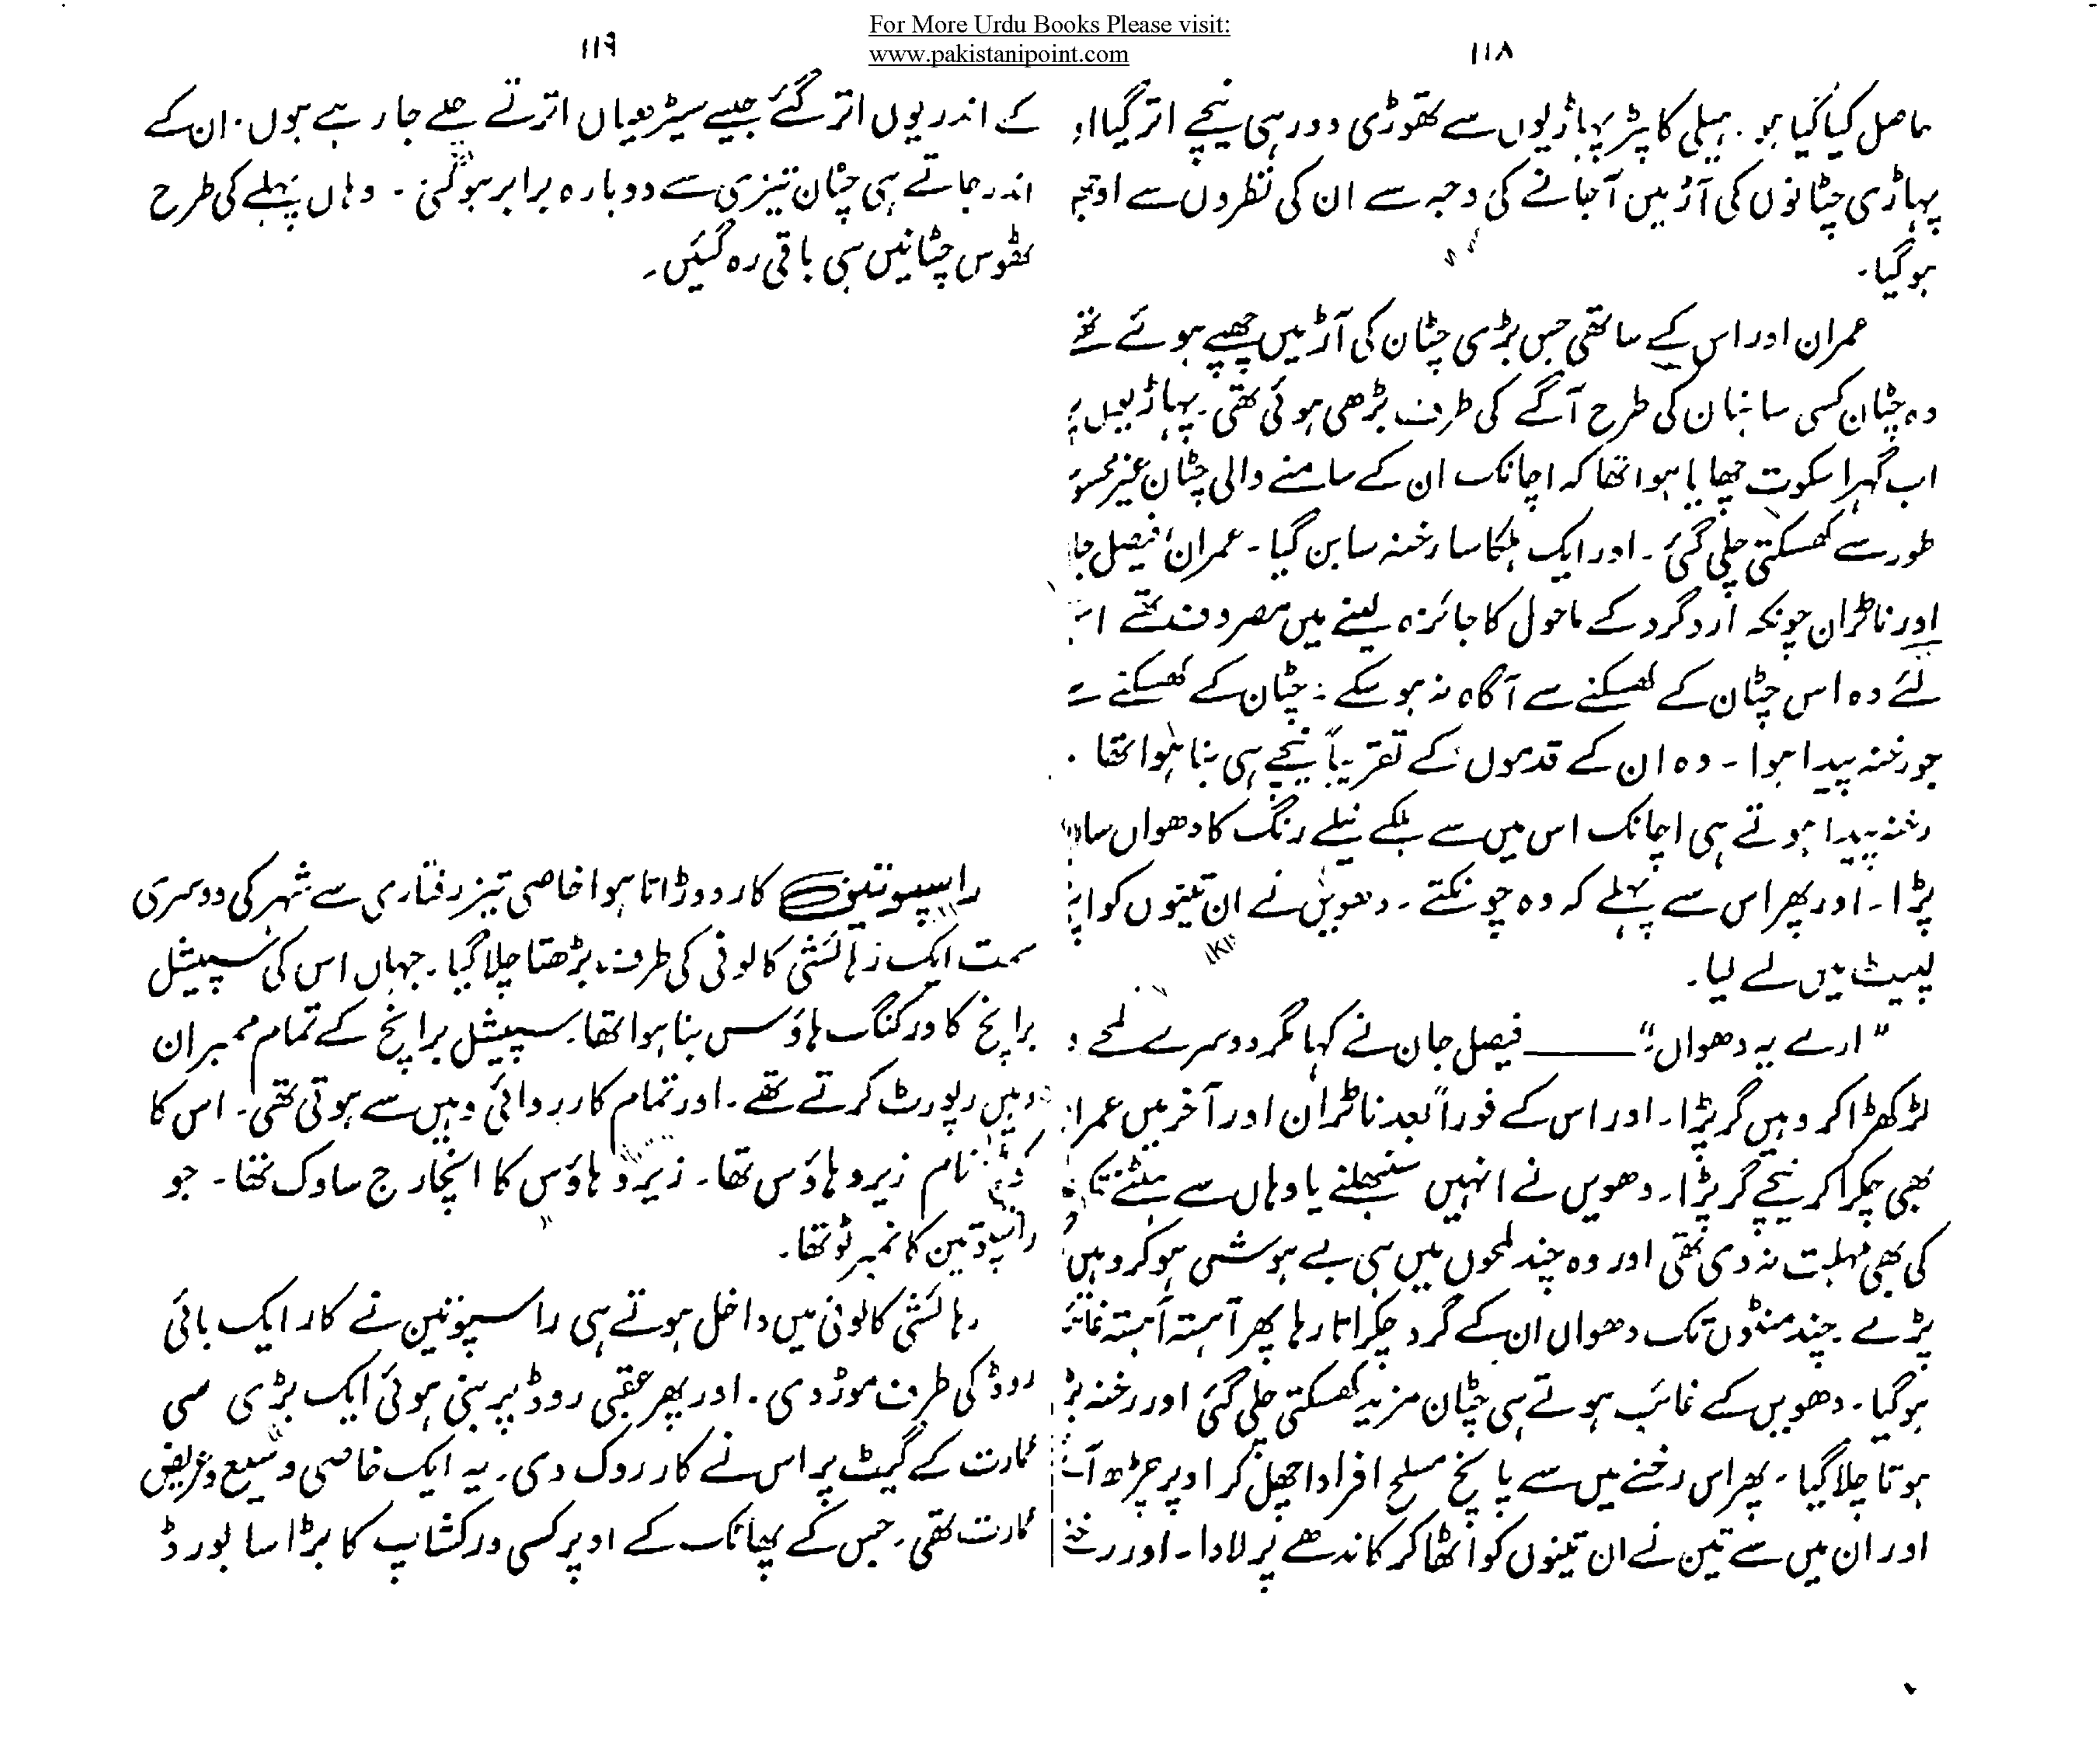 For More Urdu Books Please visit:
www.pakistanipoint.com
۱۱۸
حاصل کیا گیا ہو۔ ہیلی کاپٹر پہاڑیوں سے تھوڑی دور ہی نیچے اتر گیا او
پہاڑی چٹانوں کی آڑ میں آ جانے کی وجہ سے ان کی نظروں سے اوجھ
ہو گیا۔
عمران اور اس کے ساتھی جس بڑی چٹان کی آڑ میں چھپے ہوئے تھے
وہ چٹان کسی سائبان کی طرح آگے کی طرف بڑھی ہوئی تھی۔ پہاڑیوں پر
اب گہرا سکوت چھایا ہوا تھا کہ اچانک ان کے سامنے والی چٹان غیر محسو
طور سے کھسکتی چلی گئی۔ اور ایک ہلکا سا رخنہ سا بن گیا۔ عمران، فیصل جا
اور ناٹران چونکہ اردگرد کے ماحول کا جائزہ لینے میں مصروف تھے اس
لئے وہ اس چٹان کے کھسکنے سے آگاہ نہ ہو سکے۔ چٹان کے کھسکنے سے
جو رخنہ پیدا ہوا۔ وہ ان کے قدموں کے تقریباً نیچے ہی بنا ہوا تھا۔
رخنہ پیدا ہوتے ہی اچانک اس میں سے ہلکے نیلے رنگ کا دھواں سا
پڑا۔ اور پھر اس سے پہلے کہ وہ چونکتے۔ دھویں نے ان تینوں کو اپنی
لپیٹ میں لے لیا۔
"ارے یہ دھواں"۔۔۔۔ فیصل جان نے کہا مگر دوسرے لمحے و
لڑکھڑا کر وہیں گر پڑا۔ اور اس کے فوراً بعد ناٹران اور آخر میں عمران
بھی چکرا کر نیچے گر پڑا۔ دھویں نے انہیں سنبھلنے یا وہاں سے ہٹنے تک
کی بھی مہلت نہ دی تھی اور وہ چند لمحوں میں ہی بے ہوش ہو کر وہیں
پڑے۔ چند منٹوں تک دھواں ان کے گرد چکراتا رہا پھر آہستہ آہستہ غائب
ہو گیا۔ دھویں کے غائب ہوتے ہی چٹان مزید کھسکتی چلی گئی اور رخنہ بڑ
ہوتا چلا گیا۔ پھر اس رخنے میں سے پانچ مسلح افراد اچھل کر اوپر چڑھ آئے
اور ان میں سے تین نے ان تینوں کو اٹھا کر کاندھے پر لادا۔ اور رخنے
۱۱۹
کے اندر یوں اتر گئے جیسے سیڑھیاں اترتے چلے جا رہے ہوں۔ ان کے
اندر جاتے ہی چٹان تیزی سے دوبارہ برابر ہو گئی۔ وہاں پہلے کی طرح
ٹھوس چٹانیں ہی باقی رہ گئیں۔
راسپوتین کار دوڑاتا ہوا خاصی تیز رفتاری سے شہر کی دوسری
سمت ایک رہائشی کالونی کی طرف بڑھتا چلا گیا۔ جہاں اس کی سپیشل
برانچ کا ورکنگ ہاؤس بنا ہوا تھا۔ سپیشل برانچ کے تمام ممبران
وہیں رپورٹ کرتے تھے۔ اور تمام کارروائی وہیں سے ہوتی تھی۔ اس کا
کوڈ نام زیرو ہاؤس تھا۔ زیرو ہاؤس کا انچارج ساوک تھا۔ جو
راسپوتین کا نمبر ٹو تھا۔
رہائشی کالونی میں داخل ہوتے ہی راسپوتین نے کار ایک بائی
روڈ کی طرف موڑ دی۔ اور پھر عقبی روڈ پر بنی ہوئی ایک بڑی سی
عمارت کے گیٹ پر اس نے کار روک دی۔ یہ ایک خاصی وسیع و عریض
عمارت تھی۔ جس کے پھاٹک کے اوپر کسی ورکشاپ کا بڑا سا بورڈ